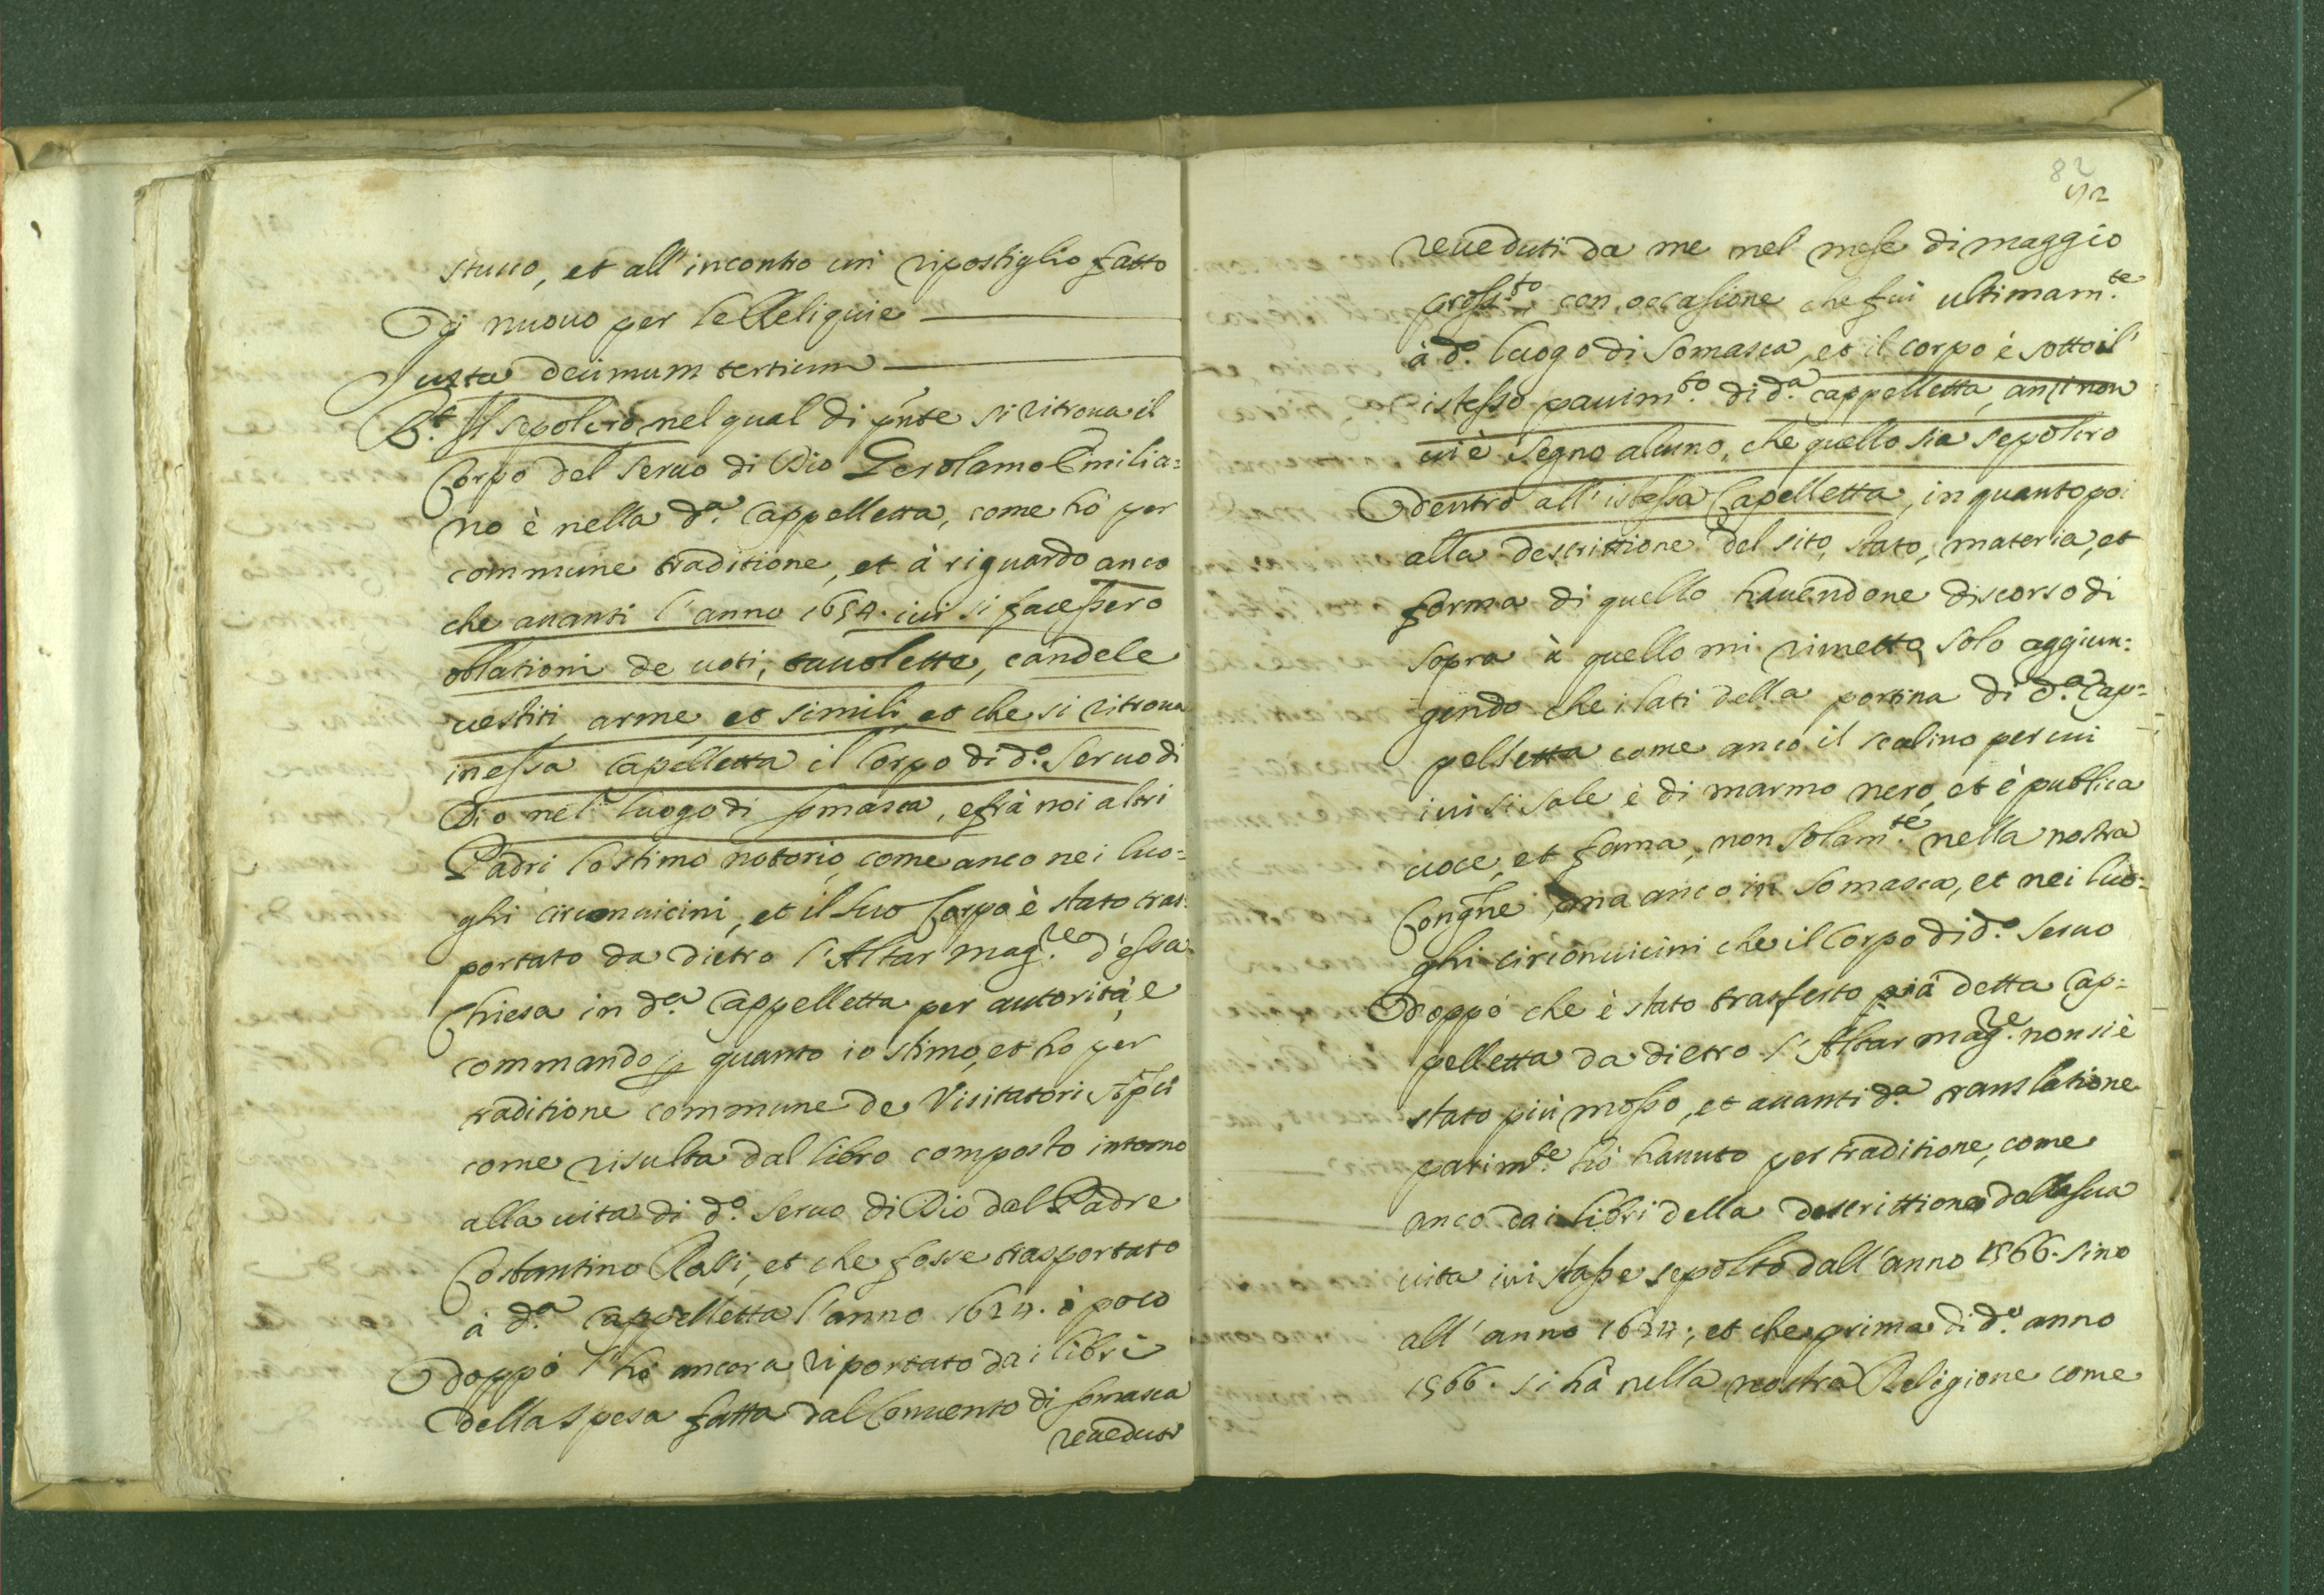 stucco, et all'incontro un ripostiglio fatto
Di nuouo per le Reliquie
Iuxta decimum tertium
Rt. Il sepolcro nel qual di pnte si ritroua il
Corpo del seruo di Dio Gerolamo Emilia=
no è nella da. Cappelletta, come hò per
commune traditione, et à riguardo anco
che auanti l'anno 1654. iui si facessero
oblationi de uoti, tauolette, candele
uestiti arme et simili et che si ritroua
in essa Capelletta il Corpo di do. Seruo di
Dio nel luogo di Somasca, e frà noi altri
Padri lo stimo notorio, come anco nei luo=
ghi circonuicini, et il suo Corpo è stato tras=
portato da dietro l'Altar magre. d'essa
Chiesa in da. Cappelletta per autorità, e
commando per quanto io stimo, et ho per
traditione commune de Visitatori Apci
come risulta dal libro composto intorno
alla uita di do. Seruo di Dio dal Padre
Costantino Rossi, et che fosse trasportato
à da. Cappelletta l'anno 1624. ò poco
doppò l'hò ancora riportato da i libri
della spesa fatta dal Conuento di Somasca
reueduti
82
92
reueduti da me nel mese di maggio
prossto. con occasione che fui ultimamte.
à do. luogo di Somasca, et il corpo è sotto il
istesso pauimto. di da. cappelletta, anzi non
ui è segno alcuno, che quello sia sepolcro
dentro all'istessa Capelletta, in quanto poi
alla descrittione del sito, stato, materia, et
forma di quello hauendone discorso di
sopra à quello mi rimetto, solo aggiun=
gendo che i lati della portina di da. Cap=
pelletta come anco il scalino per cui
iui si sale è di marmo nero, et è publica
uoce, et fama, non solamte. nella nostra
Congne, ma anco in Somasca, et nei luo=
ghi circonuicini che il Corpo di do. Seruo
doppò che è stato trasferto già detta Cap=
pelletta da dietro l'Altar magre. non si è
stato più mosso, et auanti da. translatione
parimte. hò hauuto per traditione, come
anco da i libri della descrittione della sua
uita iui stasse sepolto dall'anno 1566. sino
all'anno 1624; et che prima di do. anno
1566. si hà nella nostra Religione come